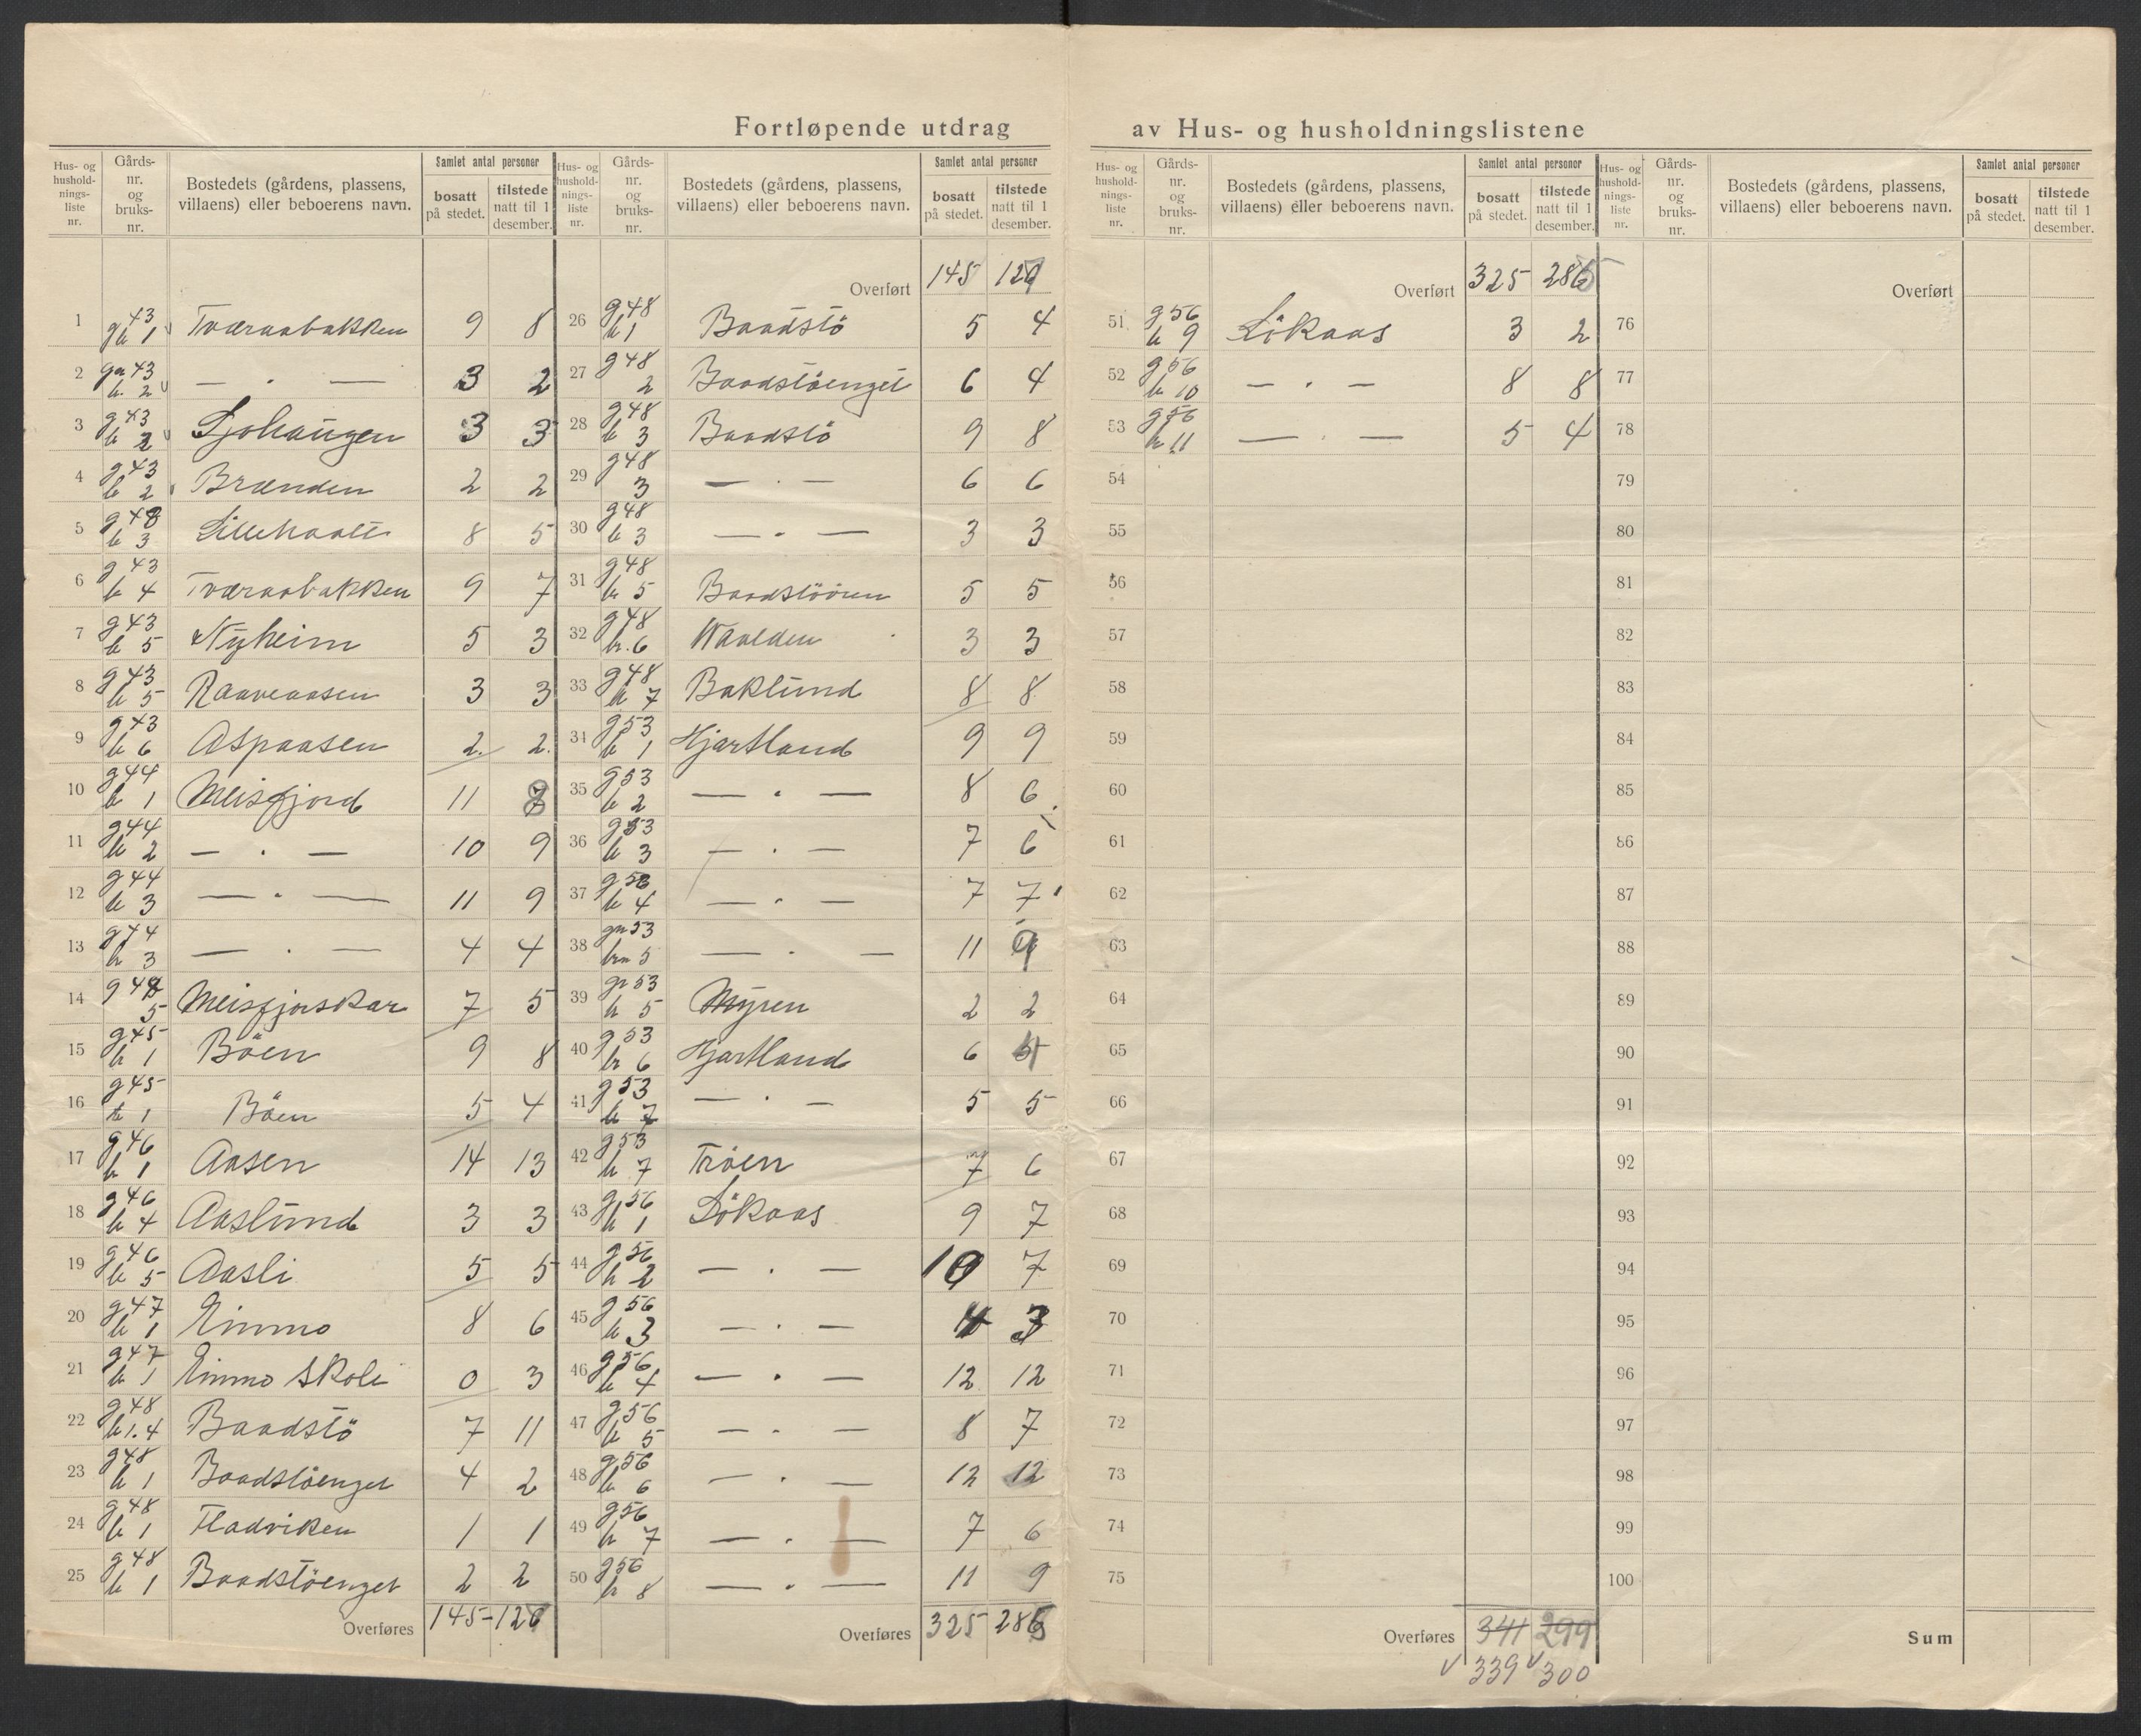 Fortløpende utdrag av Hus- og husholdningslistene
Hus- og hushold- nings- liste nr. Gårds- nr. og bruks- nr. Bostedets (gårdens, plassens, villaens) eller beboerens navn. Samlet antal personer bosatt på stedet. tilstede natt til 1 desember.
1 g 43 b 1 Tværaabakken 9 8
2 gn 43 b. 2 — " — 3 2
3 g 43 b 2 Sjohaugen 3 3
4 g 43 b 2 Brænden 2 2
5 g 43 b 3 Lillehaalt 8 5
6 g 43 b 4 Tværaabakken 9 7
7 g 43 b 5 Nyheim 5 3
8 g 43 b 5 Raaveaasen 3 3
9 g 43 b 6 Aspaasen 2. 2.
10 g 44 b 1 Meisfjord 11 8
11 g 44 b 2 — " — 10 9
12 g 44 b 3 — " — 11 9
13 g 44 b 3 — " — 4 4
14 g 44 5 Meisfjorskar 7 5
15 g 45 b 1 Böen 9 8
16 g 45 b 1 Böen 5 4
17 g 46 b 1 Aasen 14 13
18 g 46 b 4 Aaslund 3 3
19 g 46 b 5 Aasli 5 5
20 g 47 b 1 Einmo 8 6
21 g 47 b 1 Einmo Skole 0 3
22 g 48 b 1.4 Baadstö 7 11
23 g 48 b 1 Baadstöenget 4 2
24 g 48 b 1 Fladviken 1 1
25 g 48 b 1 Baadstöenget 2 2
Overføres 145 126
Hus- og hushold- nings- liste nr. Gårds- nr. og bruks- nr. Bostedets (gårdens, plassens, villaens) eller beboerens navn. Samlet antal personer bosatt på stedet. tilstede natt til 1 desember.
Overført 145 126
26 g 48 b 1 Baadstö 5 4
27 g 48 2 Baadstöenget 6 4
28 g 48 b 3 Baadstö 9 8
29 g 48 3 — " — 6 6
30 g 48 b 3 — " — 3 3
31 g 48 b 5 Baadstöören 5 5
32 g 48 br. 6 Waalden 3 3
33 g 48 b 7 Baklund 8 8
34 g 53 b 1 Hjartland 9 9
35 g 53 b 2 — " — 8 6
36 g 53 b 3 — " — 7 6
37 g 53 b 4 — " — 7 7
38 gn 53 brn 5 — " — 11 9
39 gr 53 b 5 Myren 2 2
40 g 53 br 6 Hjartland 6 5
41 g 53 b 7 — " — 5 5
42 g 53 b 7 Tröen 7 6
43 g 56 b 1 Lökaas 9 7
44 g 56 b 2 — " — 10 7
45 g 56 b 3 — " — 4 3
46 g 56 b 4 — " — 12 12
47 g 56 b 5 — " — 8 7
48 g 56 b 6 — " — 12 12
49 g 56 b 7 — " — 7 6
50 g 56 br 8 — " — 11 9
Overføres 325 285
Hus- og hushold- nings- liste nr. Gårds- nr. og bruks- nr. Bostedets (gårdens, plassens, villaens) eller beboerens navn. Samlet antal personer bosatt på stedet. tilstede natt til 1 desember.
Overført 325 285
51 g 56 b 9 Lökaas 3 2
52 g 56 b 10 — " — 8 8
53 g 56 b 11 — " — 5 4
54
55
56
57
58
59
60
61
62
63
64
65
66
67
68
69
70
71
72
73
74
75
Overføres 341 299
v 339 v 300
Hus- og hushold- nings- liste nr. Gårds- nr. og bruks- nr. Bostedets (gårdens, plassens, villaens) eller beboerens navn. Samlet antal personer bosatt på stedet. tilstede natt til 1 desember.
Overført
76
77
78
79
80
81
82
83
84
85
86
87
88
89
90
91
92
93
94
95
96
97
98
99
100
Sum